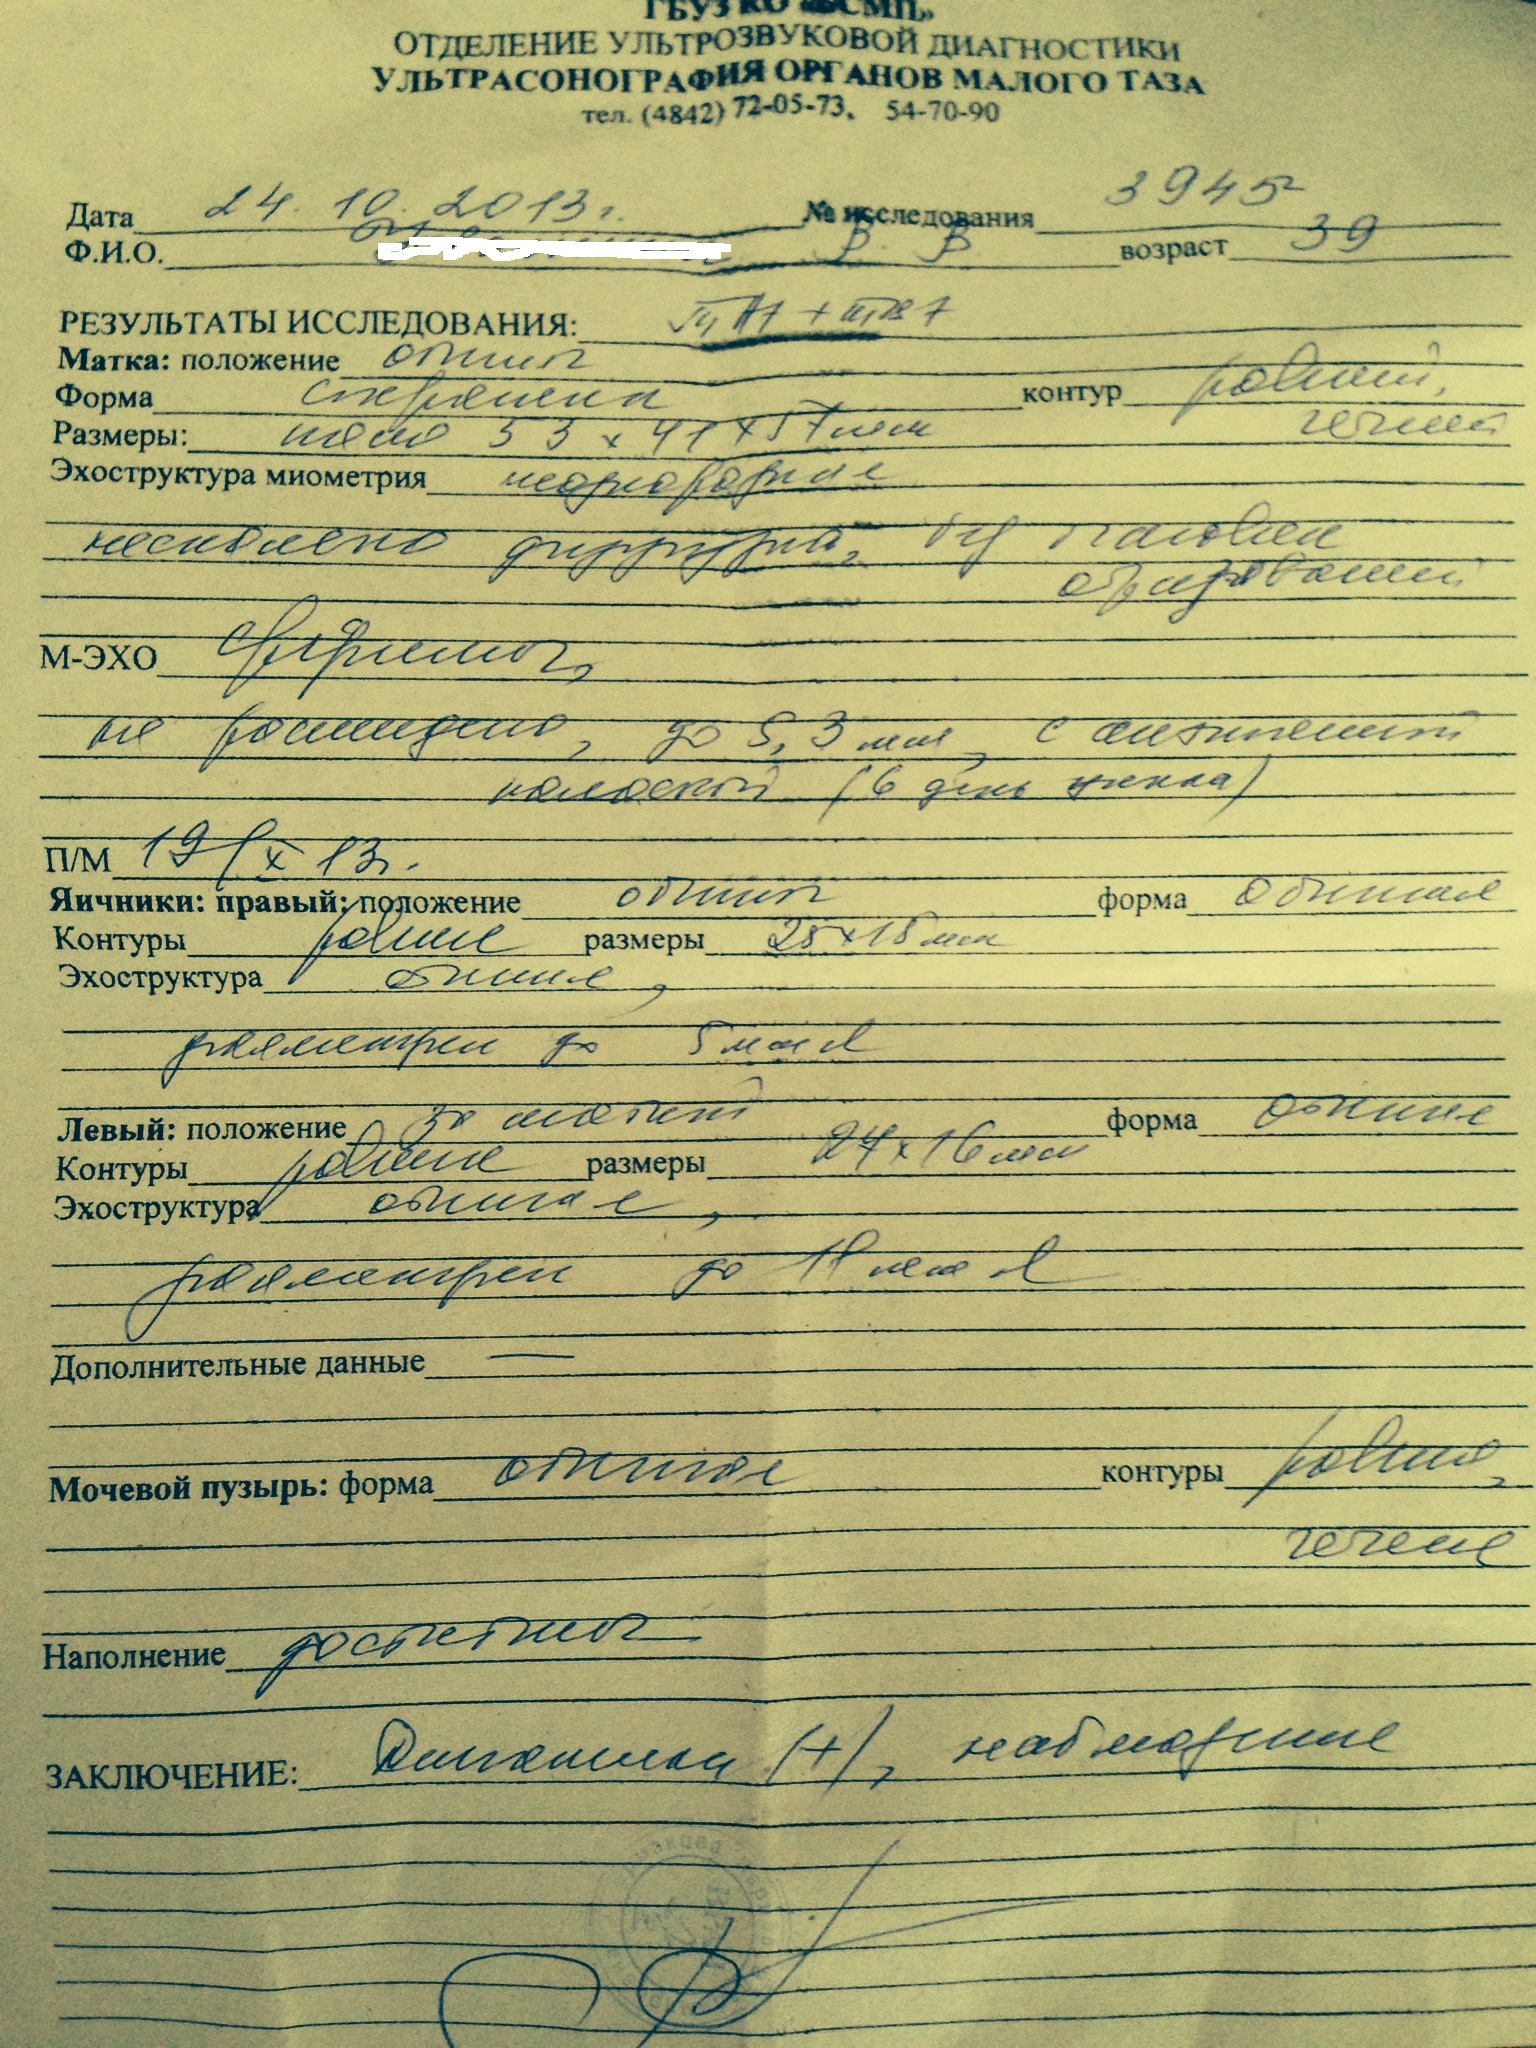 ГБУЗ КО «БСМП»
ОТДЕЛЕНИЕ УЛЬТРОЗВУКОВОЙ ДИАГНОСТИКИ
УЛЬТРАСОНОГРАФИЯ ОРГАНОВ МАЛОГО ТАЗА
тел. (4842) 72-05-73, 54-70-90
Дата 24.10.2013г. № исследования 3945
Ф.И.О. В. В возраст 39
РЕЗУЛЬТАТЫ ИССЛЕДОВАНИЯ:
Матка: положение обычн
Форма сохранена контур ровный,
Размеры: тело 53 х 41 х 57 мм четкий
Эхоструктура миометрия неоднородная
несколько диффузно, без узловых
образований
М-ЭХО
не расширено, до 5,3 мм, с
полоской (6 день цикла)
П/М 19/X 13г.
Яичники: правый: положение обычн форма обычная
Контуры ровные размеры 28х18 мм
Эхоструктура обычная,
диаметром до 5 мм
Левый: положение за маткой форма обычная
Контуры ровные размеры 24х16 мм
Эхоструктура обычная,
диаметром до 11 мм
Дополнительные данные —
Мочевой пузырь: форма обычная контуры ровные,
четкие
Наполнение достаточн
ЗАКЛЮЧЕНИЕ: (+), наблюдение